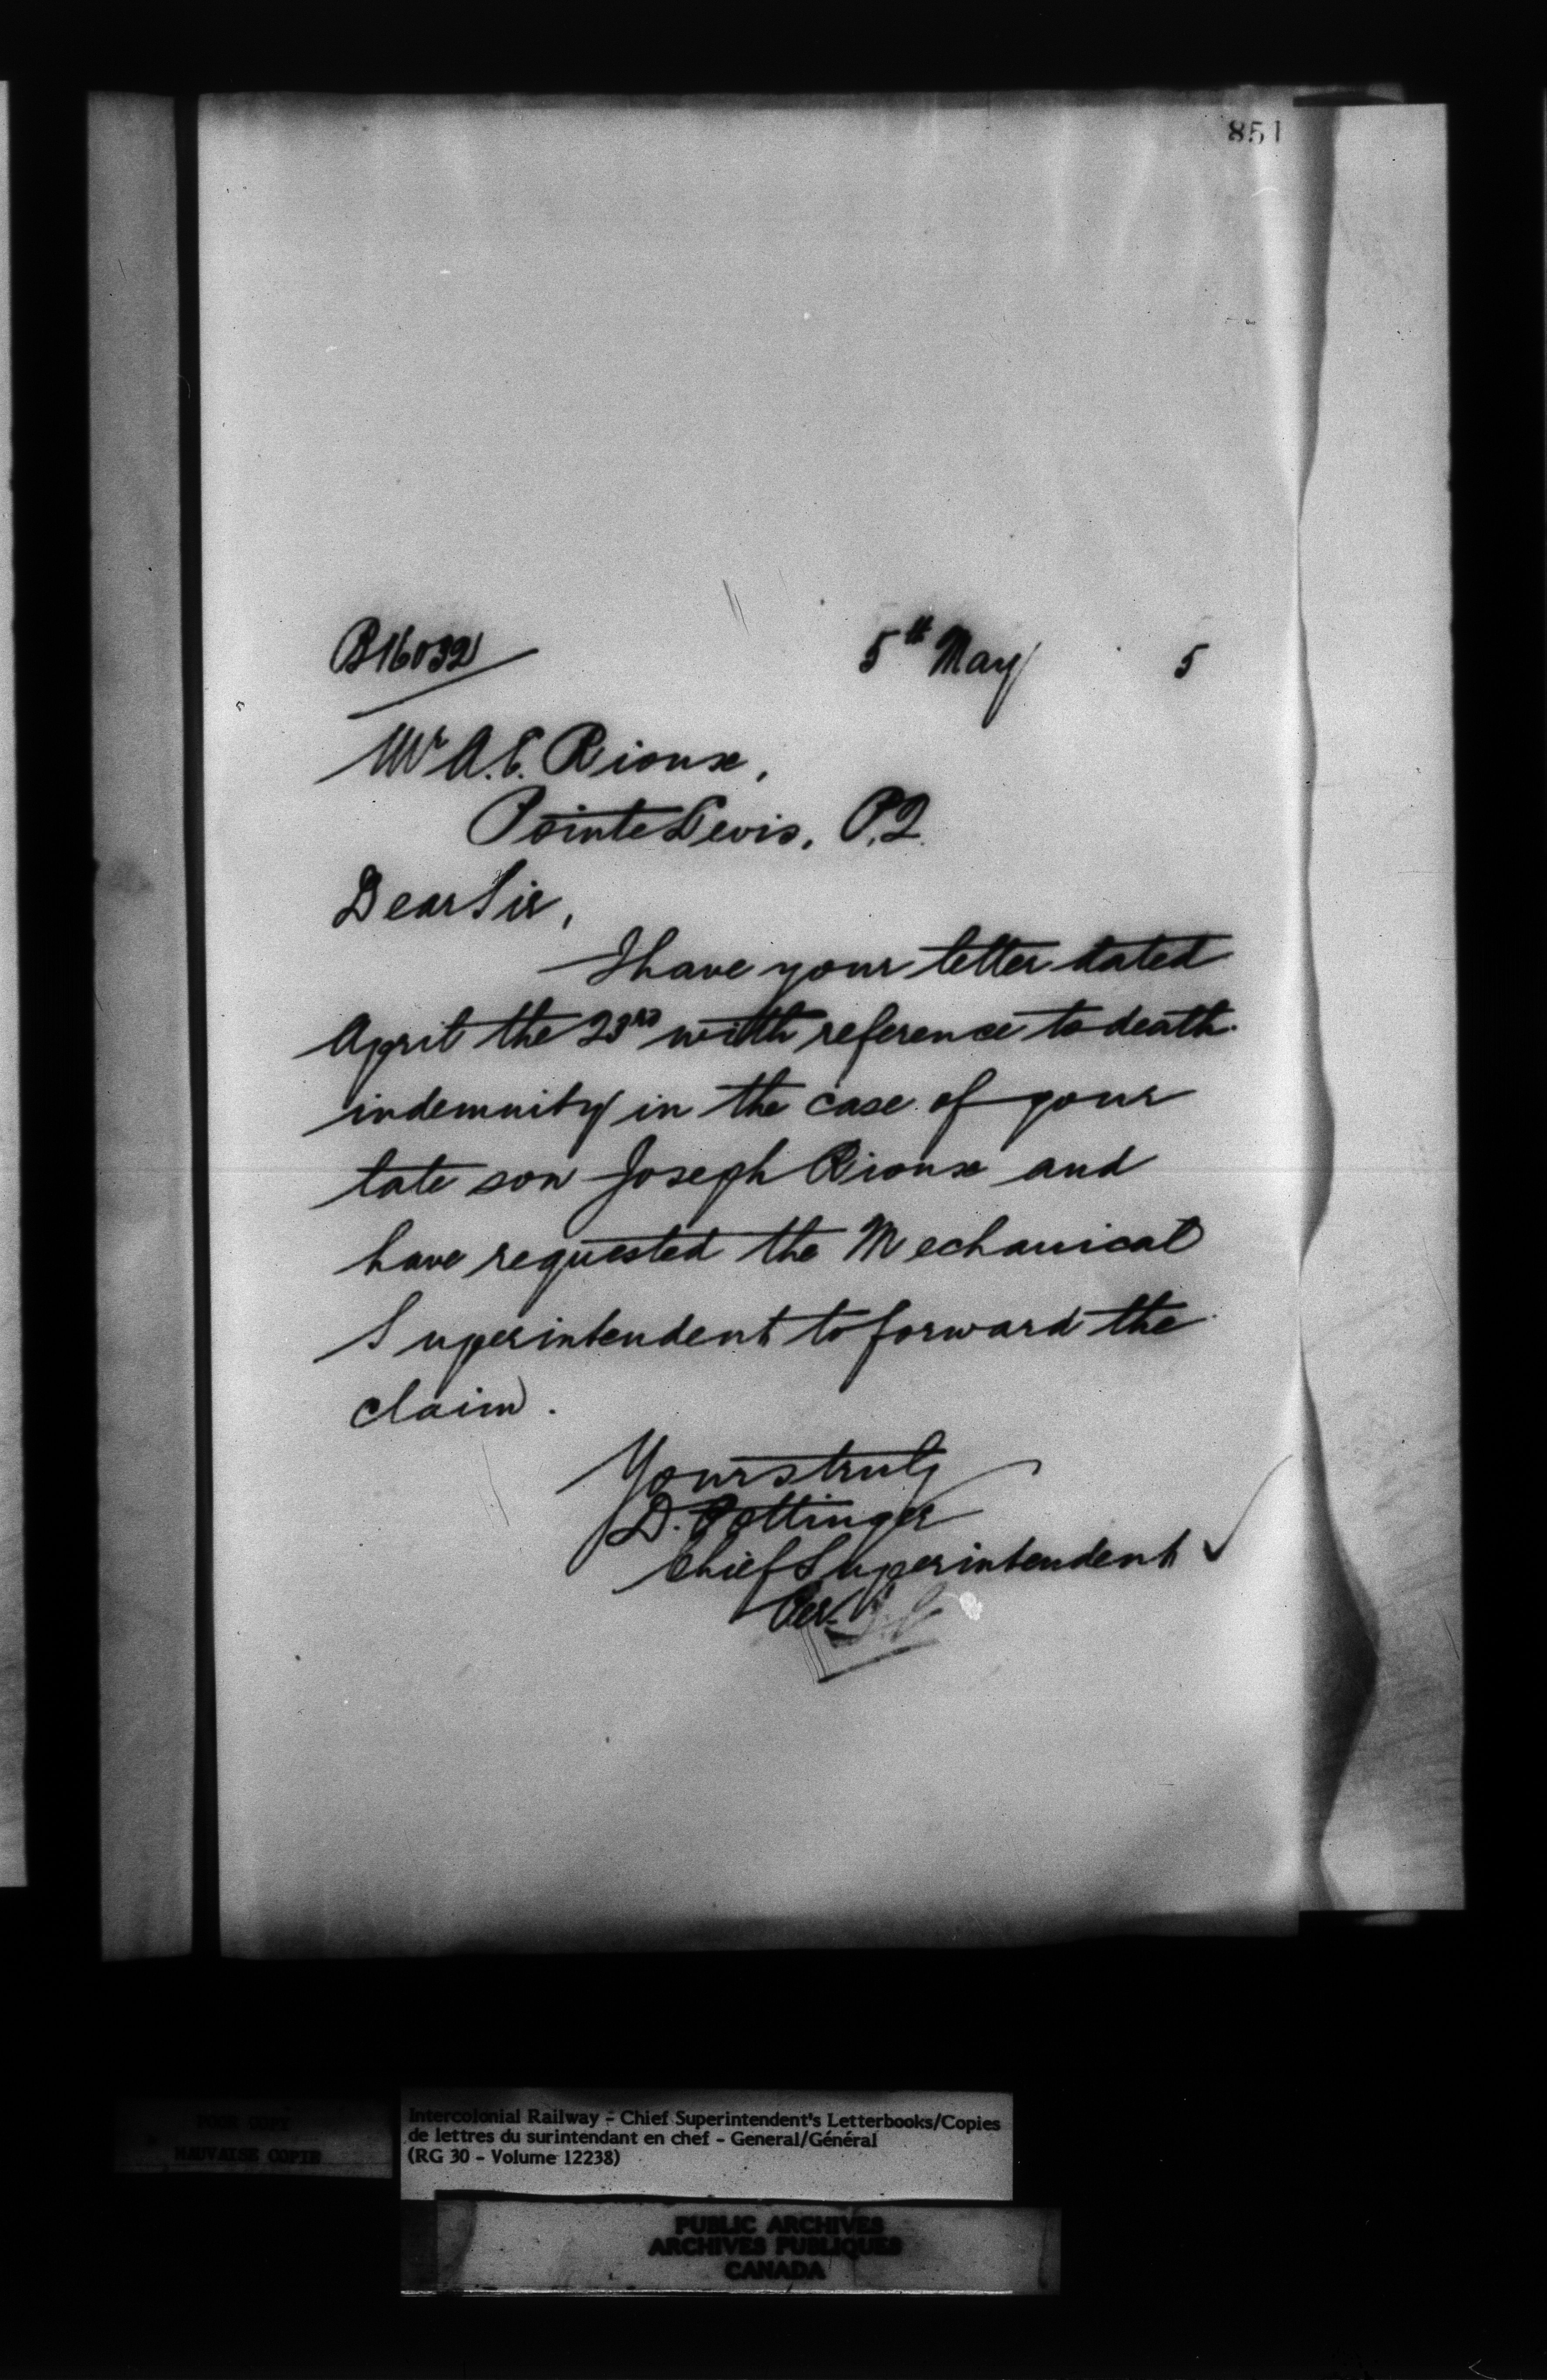 851
B16032
5th May 5
Mr A.E. Rioux,
Pointe Levis, P.Q.
Dear Sir,
I have your letter dated
April the 23rd with reference to death
indemnity in the case of your
late son Joseph Rioux and
have requested the Mechanical
Superintendent to forward the
claim.
Yours truly
D. Pottinger
Chief Superintendent
Per
POOR COPY
MAUVAISE COPIE
Intercolonial Railway - Chief Superintendent's Letterbooks/Copies
de lettres du surintendant en chef - General/Général
(RG 30 - Volume 12238)
PUBLIC ARCHIVES
ARCHIVES PUBLIQUES
CANADA